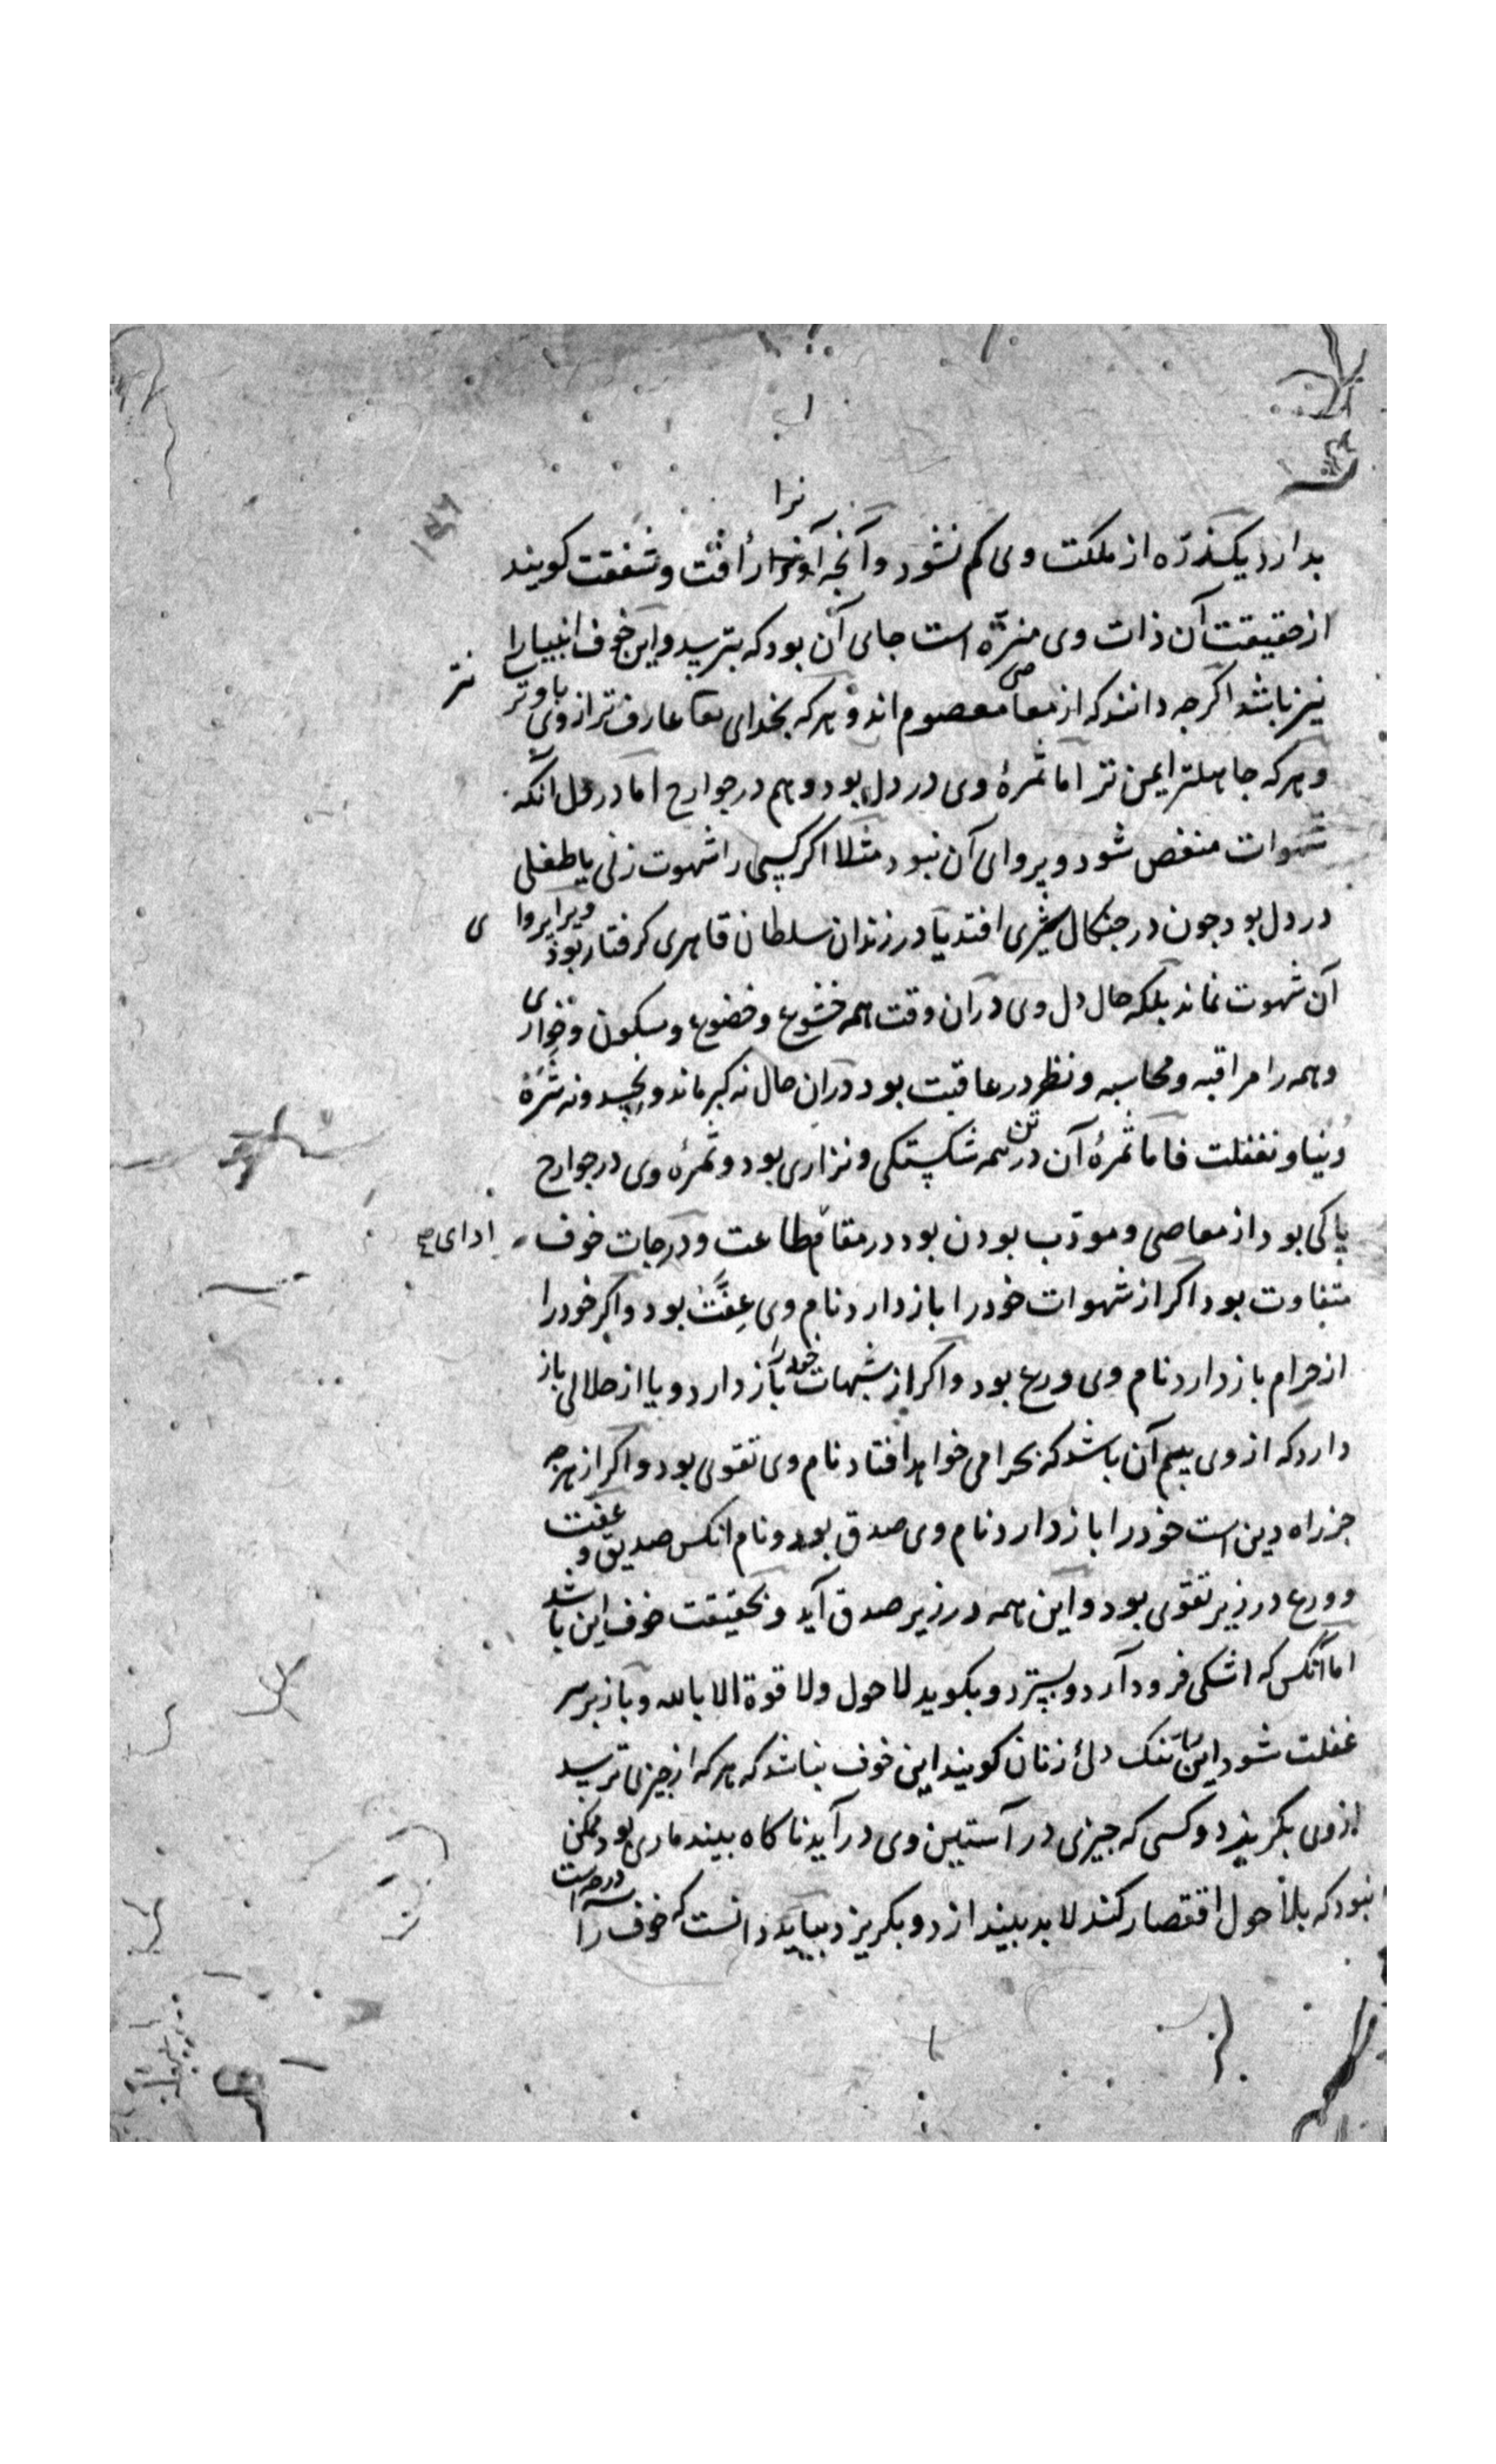 نرا
بدارد یکذره از ملکت وی کم نشود و آنجه آونرا رأفت و شفقت کویند
از حقیقت آن ذات وی منزه است جای آن بود که بترسد و این خوف انبیا را
نیز باشد اکرجه دانند که از معاصی معصوم اند و هرکه بخدای تعا عارف تر از وی با وتر
و هرکه جاهلتر ایمن تر اما ثمرهٔ وی در دل بود و هم در جوارح اما در دل آنکه
شهوات منغص شود و پروای آن نبود مثلا اکر کسی را شهوت زنی یا طفلی
در دل بود جون در جنکال شیری افتد یا در زندان سلطان قاهری کرفتار بود ویرا پروا ی
آن شهوت نماند بلکه حال دل وی در آن وقت همه خشوع و خضوع و سکون و خواری
و همه را مراقبه و محاسبه و نظر در عاقبت بود در آن حال نه کبر ماند و نحسد و نه شره
دنیا و نغفلت فاما ثمرهٔ آن در تن همه شکستکی و نزاری بود و ثمرهٔ وی در جوارح
پاکی بود از معاصی و مودب بودن بود در مقام طاعت و درجات خوف
ادای
متفاوت بود اکر از شهوات خود را باز دارد نام وی عِفَّت بود و اکر خود را
از حرام باز دارد نام وی ورع بود و اکر از شبهات خود را باز دارد و یا از حلالی باز
دارد که از وی بیم آن باشد که بحرامی خواهد افتاد نام وی تقوی بود و اکر از هرجه
جز راه دین است خود را باز دارد نام وی صدق بود و نام انکس صدیق و عفت
و ورع در زیر تقوی بود و این همه در زیر صدق آید و بحقیقت خوف این باشد
اما آنکس که اشکی فرود آرد و بسترد و بکوید لا حول ولا قوة الا بالله و باز بر سر
غفلت شود این را تنک دلی زنان کویند این خوف نباشد که هرکه از جیزی ترسد
از وی بکریزد و کسی که جیزی در آستین وی در آید ناکاه بیند ماری بود ممکن
نبود که بلا حول اقتصار کند لابد بیندازد و بکریزد بباید دانست که خوف را درجات